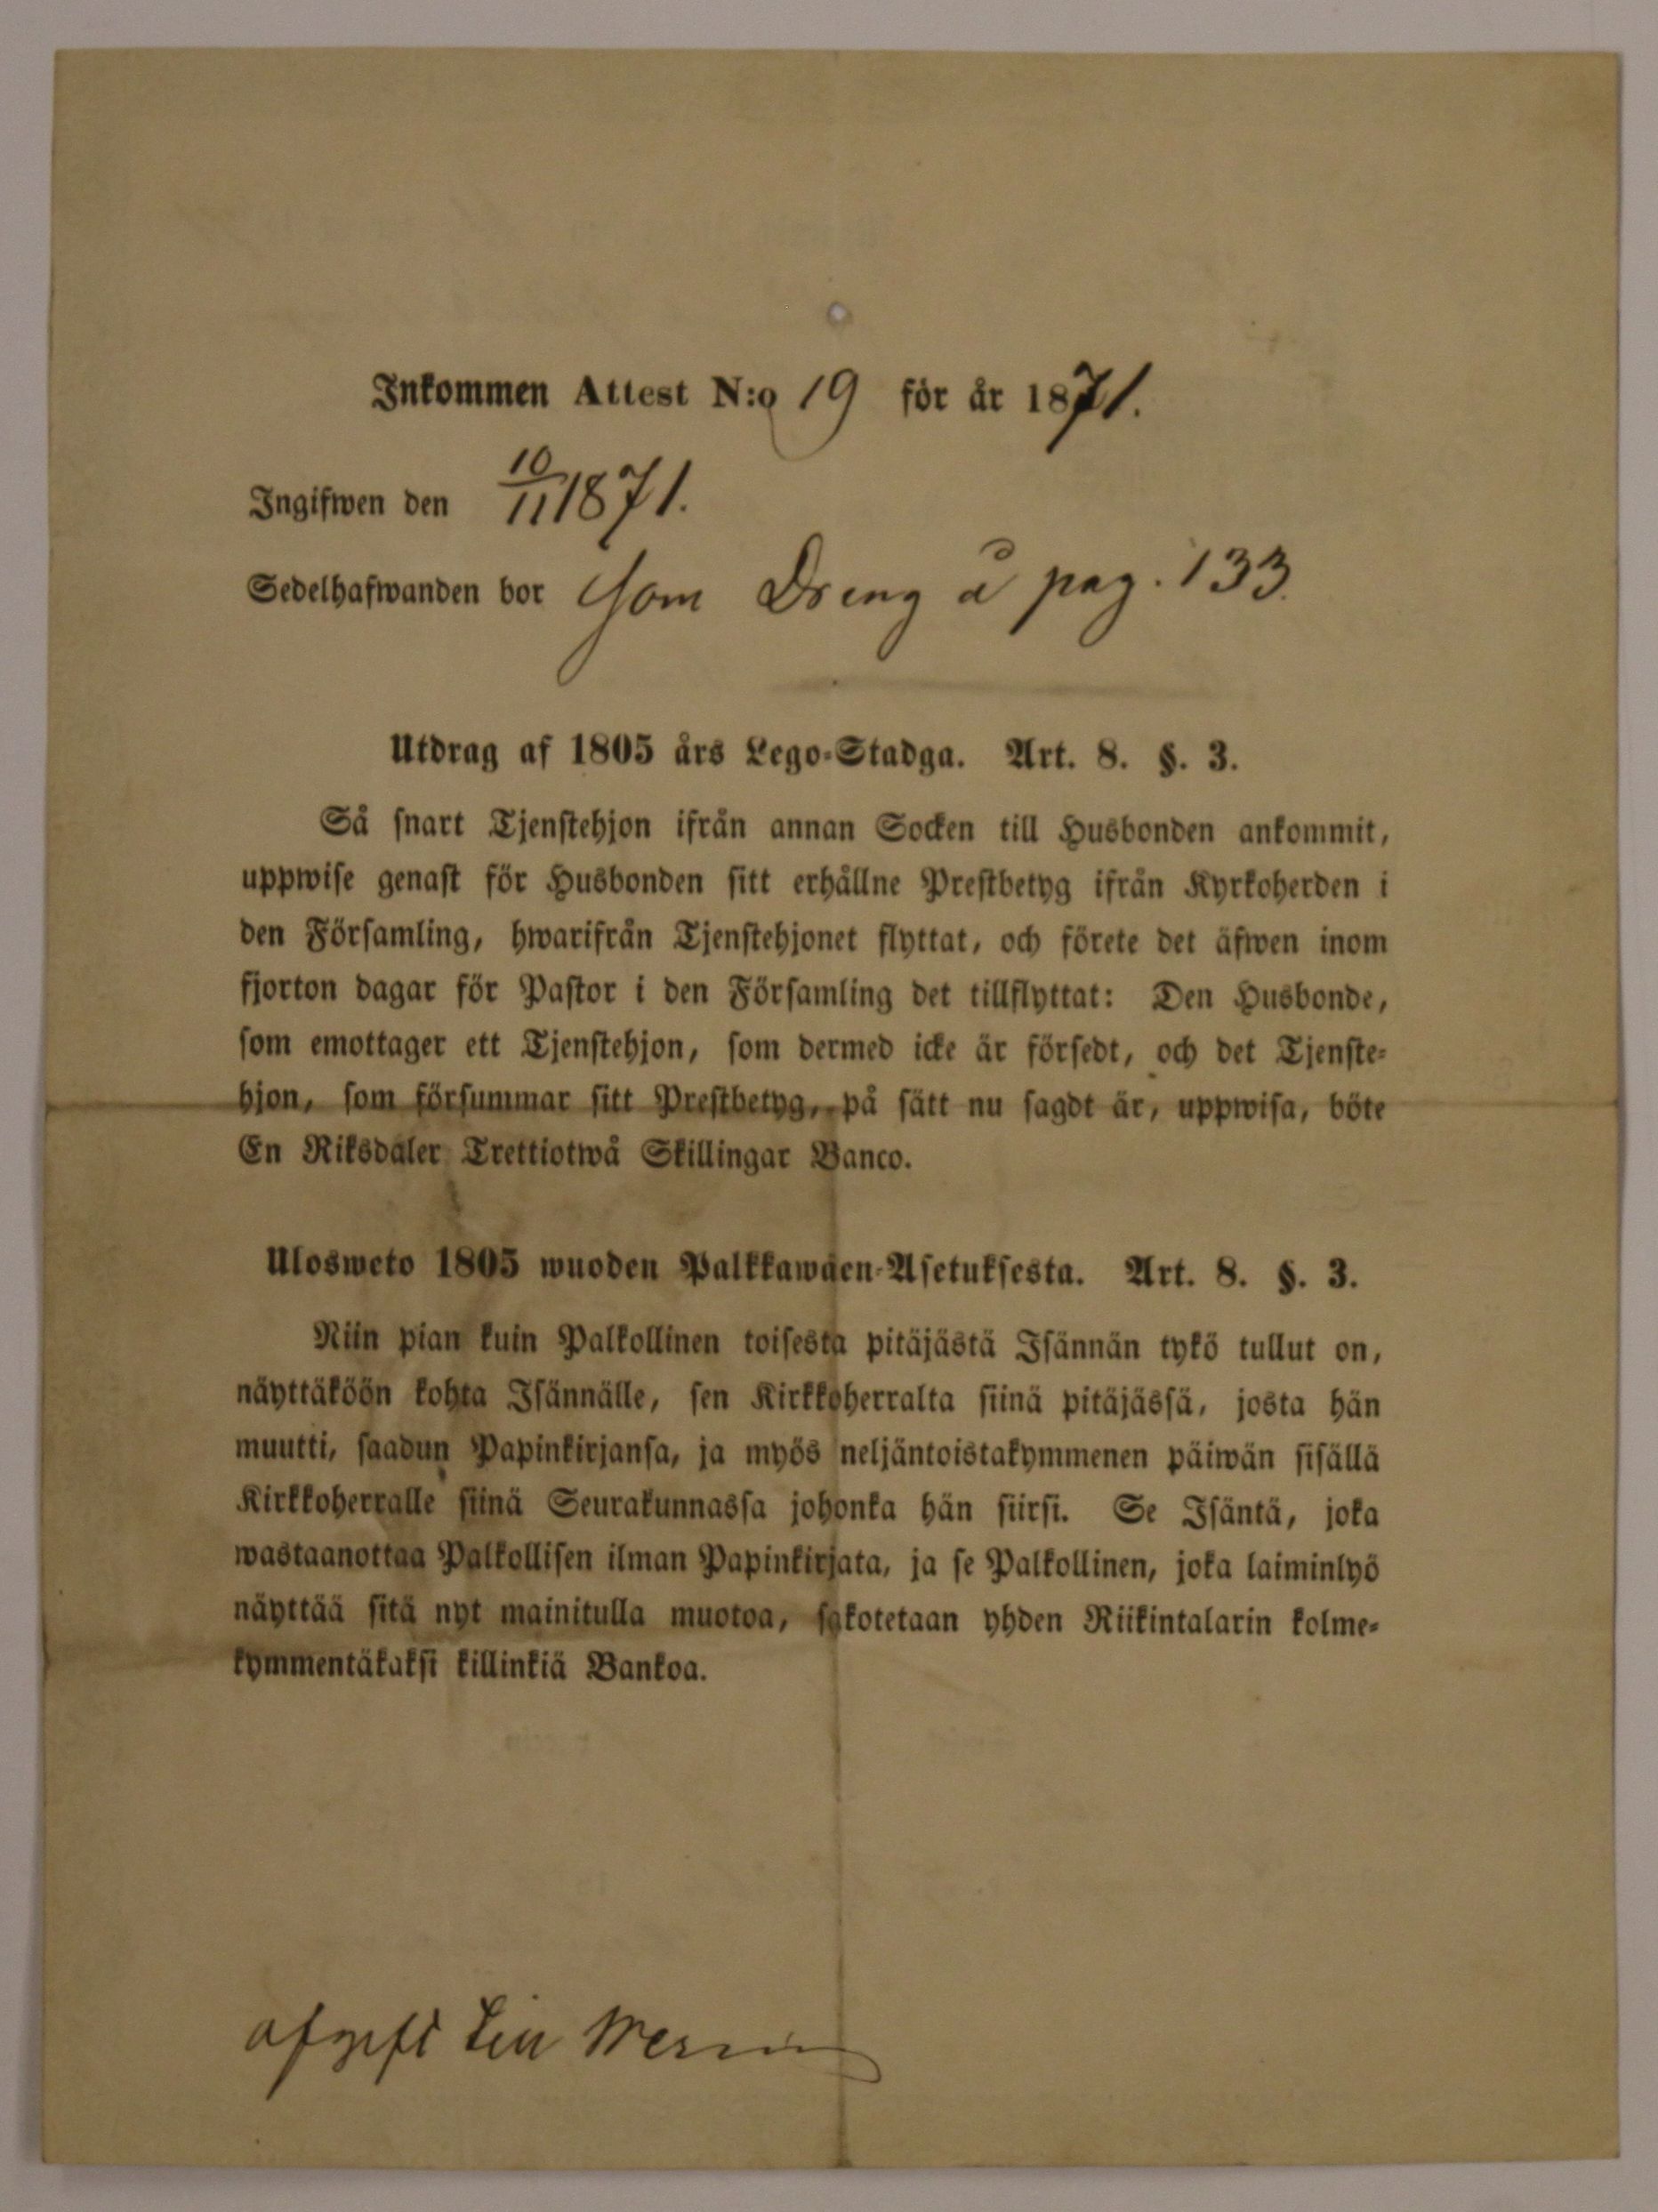 Inkommen Attest N:o 19 för år 1871.
Ingifwen den 10/11 1871.
Sedelhafwanden bor som Dreng å pag. 133.
Utdrag af 1805 års Lego-Stadga. Art. 8. §. 3.
Så snart Tjenstehjon ifrån annan Socken till Husbonden ankommit,
uppwise genast för Husbonden sitt erhållne Prestbetyg ifrån Kyrkoherden i
den Församling, hwarifrån Tjenstehjonet flyttat, och förete det äfwen inom
fjorton dagar för Pastor i den Församling det tillflyttat: Den Husbonde,
som emottager ett Tjenstehjon, som dermed icke är försedt, och det Tjenste-
hjon, som försummar sitt Prestbetyg, på sätt nu sagdt är, uppwisa, böte
En Riksdaler Trettiotwå Skillingar Banco.
Ulosweto 1805 wuoden Palkkawäen-Asetuksesta. Art. 8. §. 3.
Niin pian kuin Palkollinen toisesta pitäjästä Isännän tykö tullut on,
näyttäköön kohta Isännälle, sen Kirkkoherralta siinä pitäjässä, josta hän
muutti, saadun Papinkirjansa, ja myös neljäntoistakymmenen päiwän sisällä
Kirkkoherralle siinä Seurakunnassa johonka hän siirsi. Se Isäntä, joka
wastaanottaa Palkollisen ilman Papinkirjata, ja se Palkollinen, joka laiminlyö
näyttää sitä nyt mainitulla muotoa, sakotetaan yhden Riikintalarin kolme-
kymmentäkaksi killinkiä Bankoa.